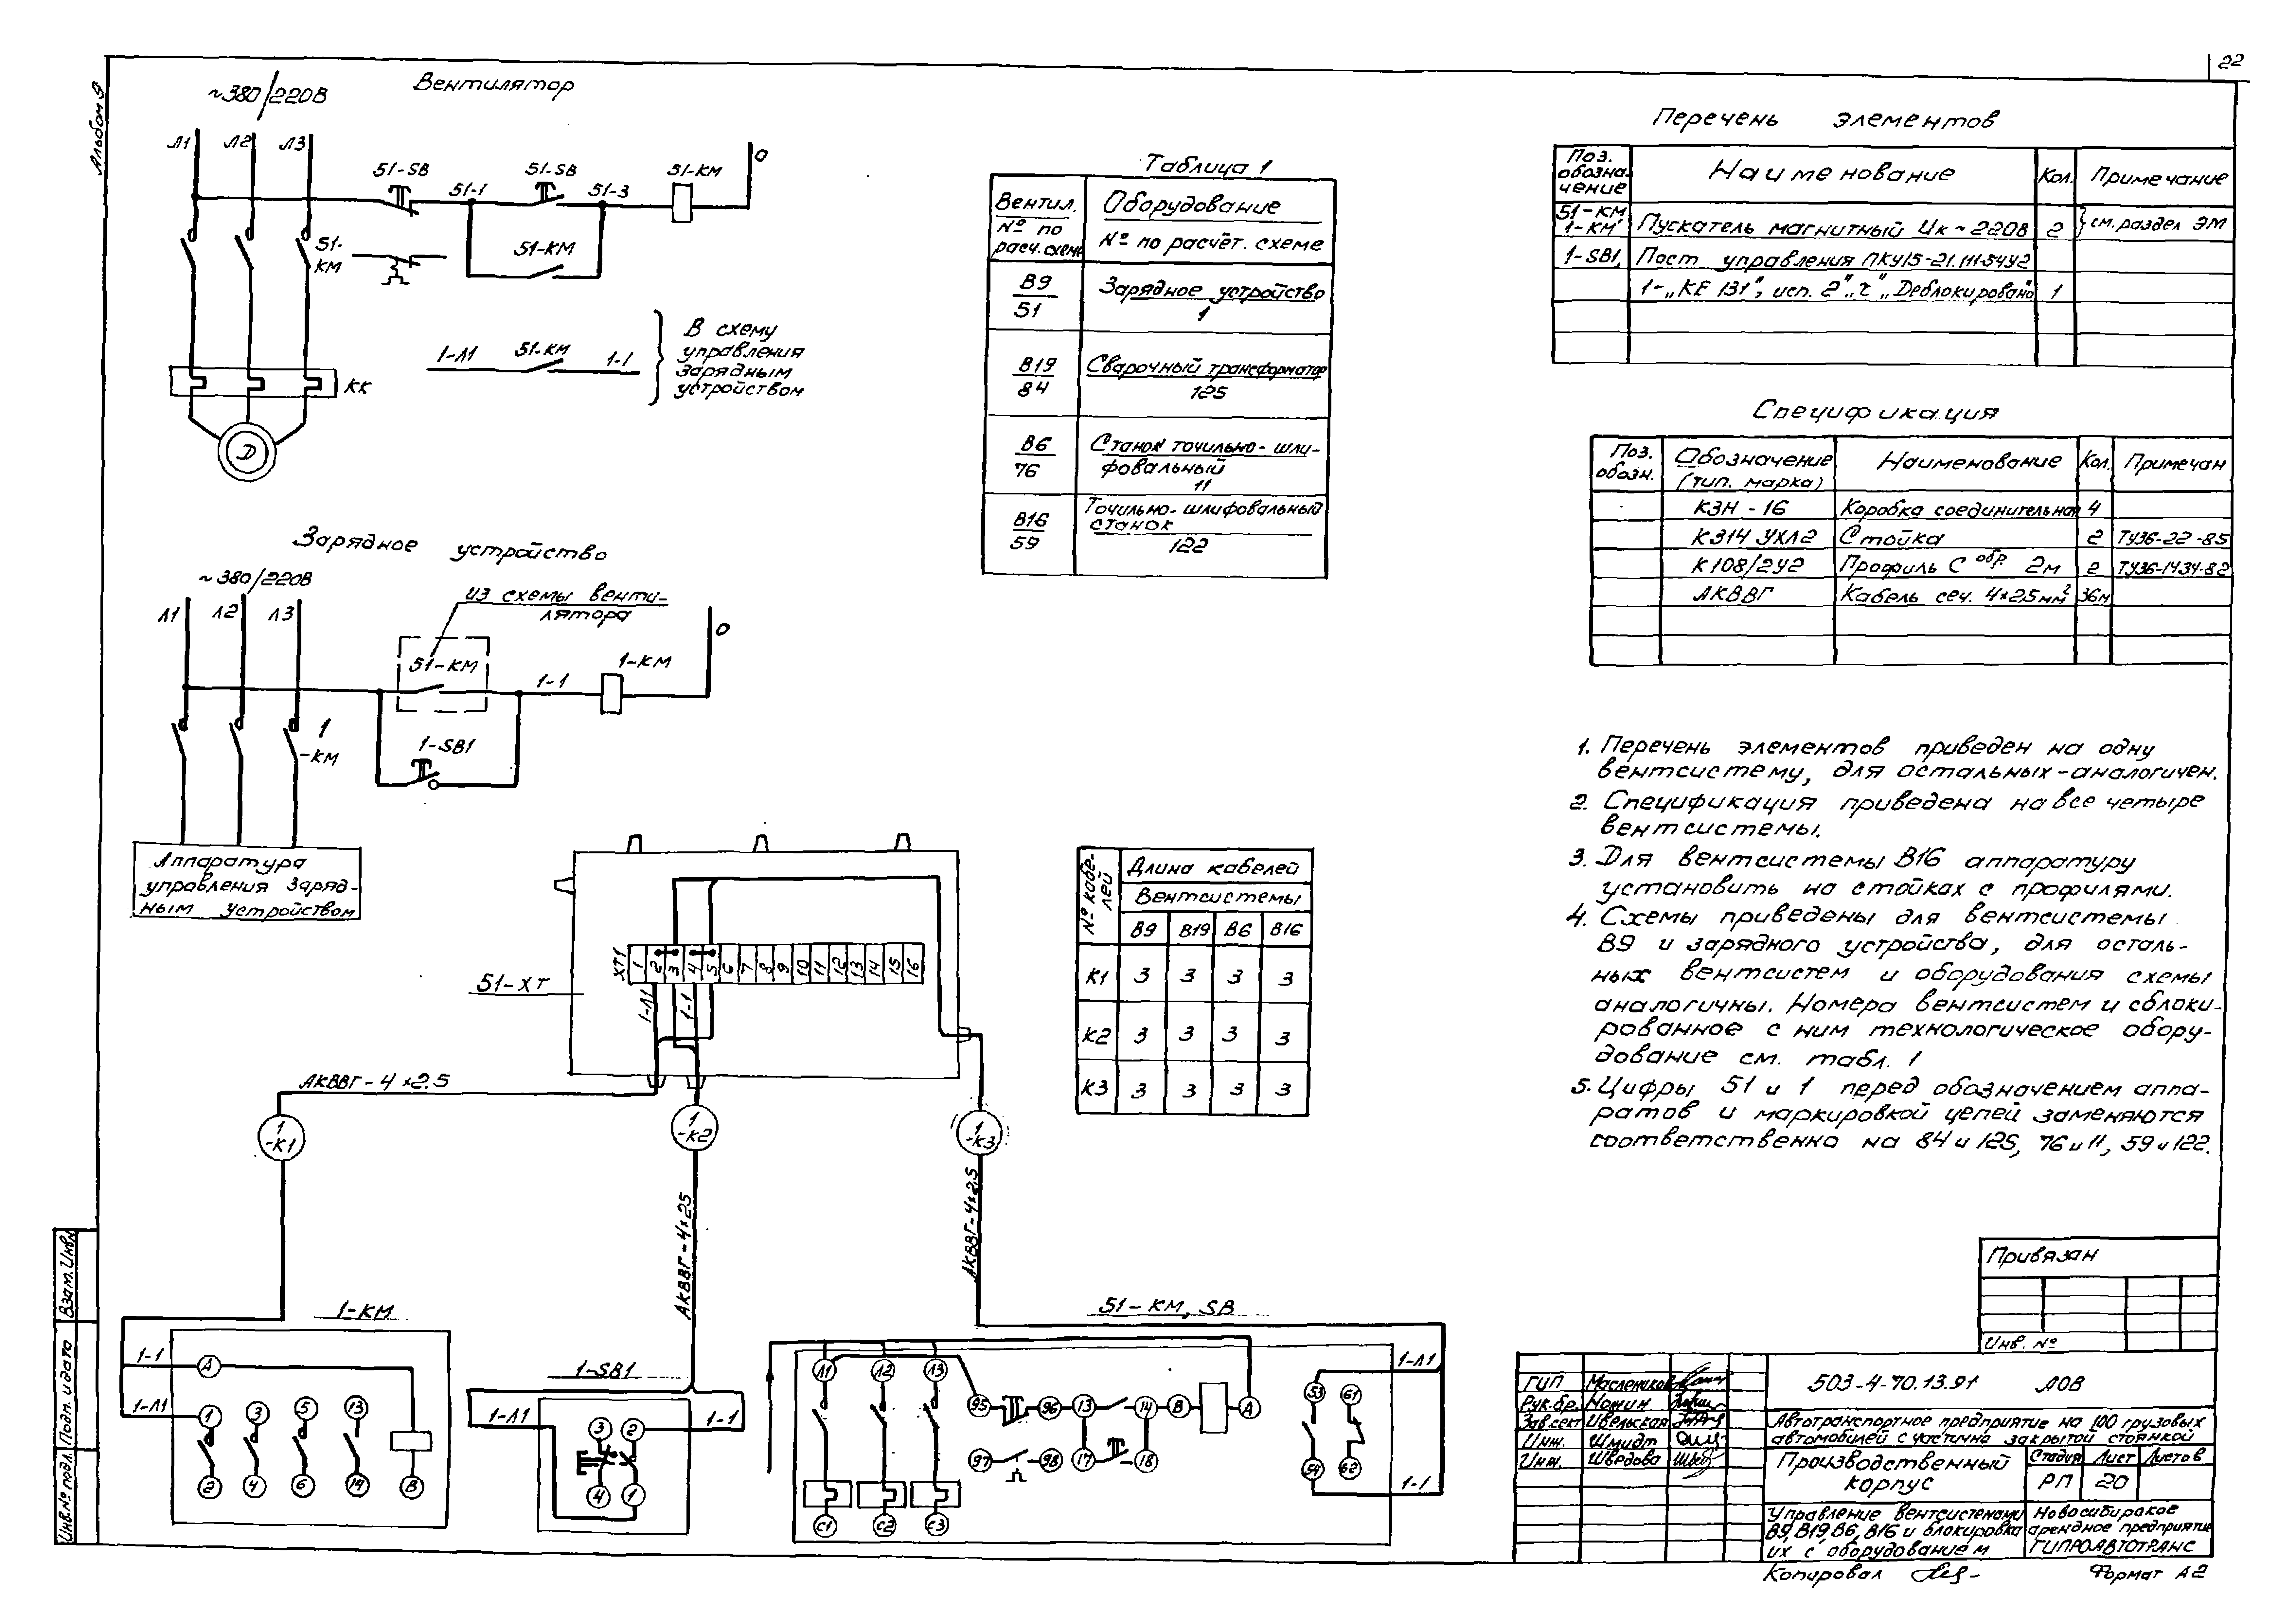 22
Альбом 9
Вентилятор
~380/220В
Л1 Л2 Л3
51-SB 51-1 51-SB 51-3 51-КМ 0
51-
КМ
51-КМ
КК
Д
1-Л1 51-КМ 1-1
В схему
управления
зарядным
устройством
Зарядное устройство
~380/220В
Л1 Л2 Л3
из схемы венти-
лятора
51-КМ 1-1 1-КМ 0
1
-КМ
1-SB1
Аппаратура
управления заряд-
ным устройством
Таблица 1
Вентил. Оборудование
№ по
расч. схеме № по расчёт. схеме
В9 Зарядное устройство
51 1
В19 Сварочный трансформатор
84 125
В6 Станок точильно-шли-
76 фовальный
11
В16 Точильно-шлифовальный
станок
59 122
Перечень элементов
Поз.
обозна-
чение Наименование Кол. Примечание
51-КМ,
1-КМ Пускатель магнитный Uк ~220В 2 см. раздел ЭМ
1-SB1, Пост управления ПКУ15-21.111-54У2
1-„КЕ 131", исп. 2 „ч" „Деблокировано" 1
Спецификация
Поз.
обозн. Обозначение
(тип. марка) Наименование Кол. Примечан
КЗН-16 Коробка соединительная 4
К314 УХЛ2 Стойка 2 ТУ36-22-85
К108/2У2 Профиль С обр. 2м 2 ТУ36-1434-82
АКВВГ Кабель сеч. 4×2,5мм² 36м
1. Перечень элементов приведен на одну
вентсистему, для остальных-аналогичен.
2. Спецификация приведена на все четыре
вентсистемы.
3. Для вентсистемы В16 аппаратуру
установить на стойках с профилями.
4. Схемы приведены для вентсистемы
В9 и зарядного устройства, для осталь-
ных вентсистем и оборудования схемы
аналогичны. Номера вентсистем и сблоки-
рованное с ним технологическое обору-
дование см. табл. 1
5. Цифры 51 и 1 перед обозначением аппа-
ратов и маркировкой цепей заменяются
соответственно на 84 и 125, 76 и 11, 59 и 122.
51-ХТ
ХТ1 1 2 3 4 5 6 7 8 9 10 11 12 13 14 15 16
1-Л1 1-1
№ кабе-
лей Длина кабелей
Вентсистемы
В9 В19 В6 В16
К1 3 3 3 3
К2 3 3 3 3
К3 3 3 3 3
АКВВГ-4×2,5
1
-К1
1
-К2
1
-К3
АКВВГ-4×2,5
АКВВГ-4×2,5
1-КМ
1-1 А
1-Л1 1 3 5 13
2 4 6 14 В
1-SB1
1-Л1 3 2 1-1
4 1
51-КМ, SB
Л1 Л2 Л3 1-Л1
95 96 13 14 В А 53 61
97 98 17 18 54 62
С1 С2 С3 1-1
Привязан
Инв. №
Взам. Инв.№
Подп. и дата
Инв.№ подл.
ГИП Маслеников
Рук.бр. Ножин
Зав.сект Ивельская
Инж. Шмидт
Инж. Шведова
503-4-70.13.91 АОВ
Автотранспортное предприятие на 100 грузовых
автомобилей с частично закрытой стоянкой
Производственный
корпус
Стадия Лист Листов
РП 20
Управление вентсистемами
В9, В19, В6, В16 и блокировка
их с оборудованием
Новосибирское
арендное предприятие
ГИПРОАВТОТРАНС
Копировал
Формат А2